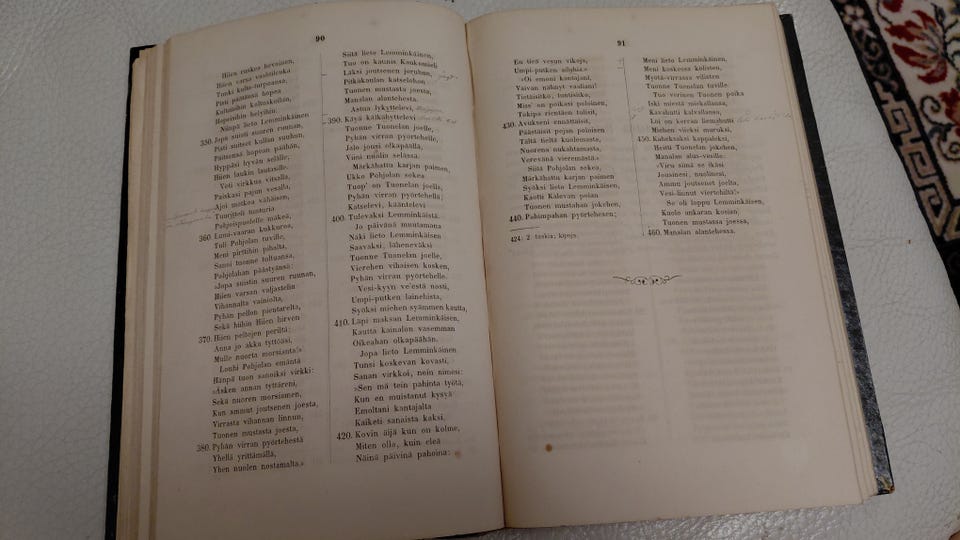 90
Hiien ruskea hevoinen,
Hiien varsa vaahtileuka
Tunki kulta-turpoansa,
Pisti päätänsä hopea
Kultaisihin kultaskoihin,
Hopeisihin helyihin.
Niinpä lieto Lemminkäinen
350. Jopa suisti suuren ruunan,
Pisti suitset kullan suuhun,
Päitsensä hopean päähän,
Hyppäsi hyvän selälle,
Hiien laukin lautasille.
Veti virkkua vitsalla,
Paiskasi pajun vesalla,
Ajoi matkoa vähäisen,
Tuuritteli tunturia
Pohjoispuolelle mäkeä,
360. Lumi-vaaran kukkuroa,
Tuli Pohjolan tuville,
Meni pirttihin pihalta,
Sanoi tuonne toltuansa,
Pohjolahan päästyänsä:
»Jopa suistin suuren ruunan,
Hiien varsan valjastelin
Vihannalta vainiolta,
Pyhän pellon pientarelta,
Sekä hiihin Hiien hirven
370. Hiien peltojen periltä;
Anna jo akka tyttöäsi,
Mulle nuorta morsianta!»
Louhi Pohjolan emäntä
Hänpä tuon sanoiksi virkki:
»Äsken annan tyttäreni,
Sekä nuoren morsiamen,
Kun ammut joutsenen joesta,
Virrasta vihannan linnun,
Tuonen mustasta joesta,
380. Pyhän virran pyörtehestä
Yhellä yrittämällä,
Yhen nuolen nostamalta.»
Siitä lieto Lemminkäinen,
Tuo on kaunis Kaukomieli
Läksi joutsenen joruhun,
Pitkäkaulan katselohon
Tuonen mustasta joesta,
Manalan alantehesta.
Astua lykyttelevi
390. Käyä källähyttelevi
Tuonne Tuonelan joelle,
Pyhän virran pyörtehelle,
Jalo jousi olkapäällä,
Viini nuolia selässä.
Märkähattu karjan paimen,
Ukko Pohjolan sokea
Tuop' on Tuonelan joella,
Pyhän virran pyörtehellä;
Katselevi, kääntelevi
400. Tulevaksi Lemminkäistä.
Jo päivänä muutamana
Näki lieto Lemminkäisen
Saavaksi, läheneväksi
Tuonne Tuonelan joelle,
Vierehen vihaisen kosken,
Pyhän virran pyörtehelle.
Vesi-kyyn ve'estä nosti,
Umpi-putken lainehista,
Syöksi miehen syämmen kautta,
410. Läpi maksan Lemminkäisen,
Kautta kainalon vasemman
Oikeahan olkapäähän.
Jopa lieto Lemminkäinen
Tunsi koskevan kovasti,
Sanan virkkoi, noin nimesi:
»Sen mä tein pahinta työtä,
Kun en muistanut kysyä
Emoltani kantajalta
Kaiketi sanaista kaksi,
420. Kovin äijä kun on kolme,
Miten olla, kuin eleä
Näinä päivinä pahoina:
91
En tieä vesun vikoja,
Umpi-putken ailuhia.»
»Oi emoni kantajani,
Vaivan nähnyt vaaliani!
Tietäisitkö, tuntisitko,
Miss' on poikasi poloinen,
Tokipa rientäen tulisit,
430. Avukseni ennättäisit,
Päästäisit pojan poloisen
Tältä tieltä kuolemasta,
Nuorena nukahtamasta,
Verevänä vieremästä.»
Siitä Pohjolan sokea,
Märkähattu karjan paimen
Syöksi lieto Lemminkäisen,
Kaotti Kalevan poian
Tuonen mustahan jokehen,
440. Pahimpahan pyörtehesen;
424: 2 taskia; kipoja.
Meni lieto Lemminkäinen,
Meni koskessa kolisten,
Myötä-virrassa vilisten
Tuonne Tuonelan tuville.
Tuo verinen Tuonen poika
Iski miestä miekallansa,
Kavahutti kalvallansa,
Löi on kerran liemahutti
Miehen viieksi muruksi,
450. Kaheksaksi kappaleksi,
Heitti Tuonelan jokehen,
Manalan alus-vesille:
»Viru siinä se ikäsi
Jousinesi, nuolinesi,
Ammu joutsenet joelta,
Vesi-linnut viertehiltä!»
Se oli loppu Lemminkäisen,
Kuolo ankaran kosian
Tuonen mustassa joessa,
460. Manalan alantehessa.